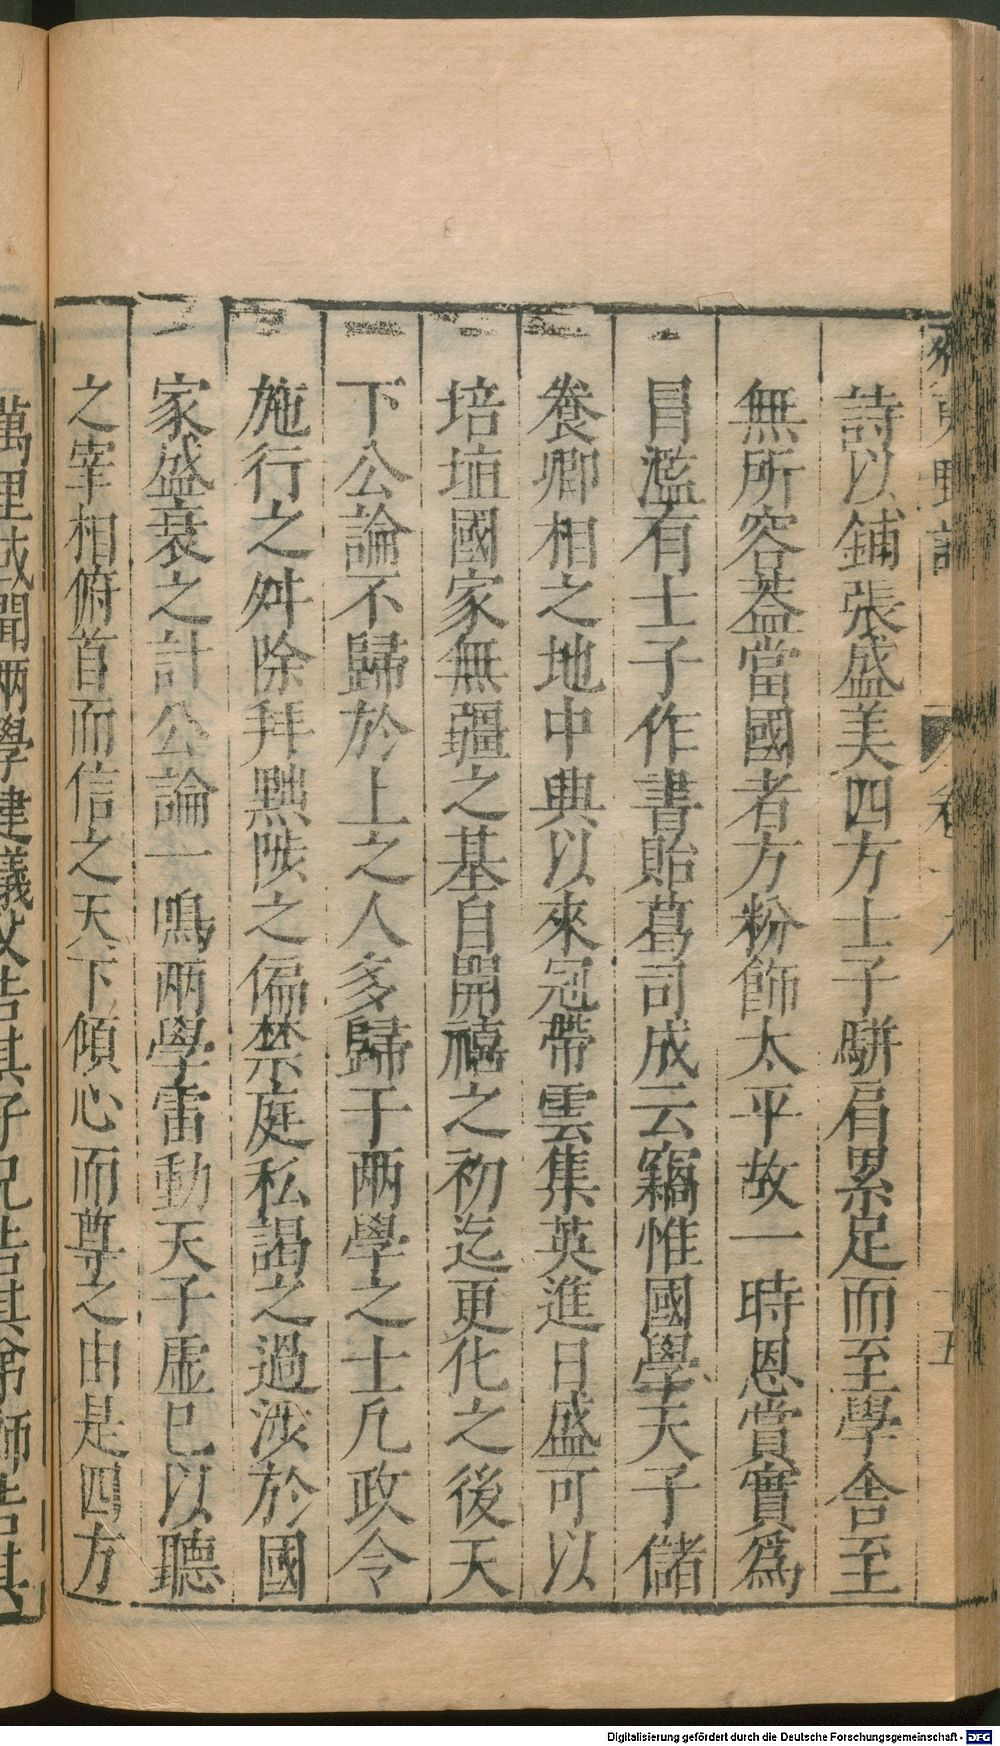 詩以鋪張盛美四方士子駢肩累足而至學舍至
無所容葢當國者方粉飾太平故一時恩賞實爲
冒濫有士子作書貽葛司成云竊惟國學天子儲
養卿相之地中興以來冠帶雲集英進日盛可以
培埴國家無疆之基自開禧之初迄更化之後天
下公論不歸於上之人多歸于兩學之士凡政令
施行之舛除拜黜陟之偏禁庭私謁之過涉於國
家盛衰之計公論一鳴兩學雷動天子虛已以聽
之宰相俯首而信之天下傾心而尊之由是四方
萬里或聞兩學建議父告其子兄告其弟師告其
Digitalisierung gefördert durch die Deutsche Forschungsgemeinschaft - DFG